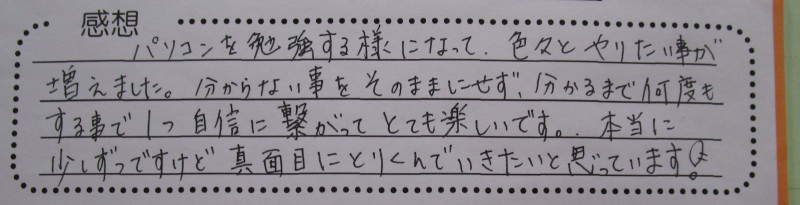 感想
パソコンを勉強する様になって、色々とやりたい事が
増えました。分からない事をそのままにせず、分かるまで何度も
する事で1つ自信に繋がってとても楽しいです。本当に
少しずつですけど真面目にとりくんでいきたいと思っています